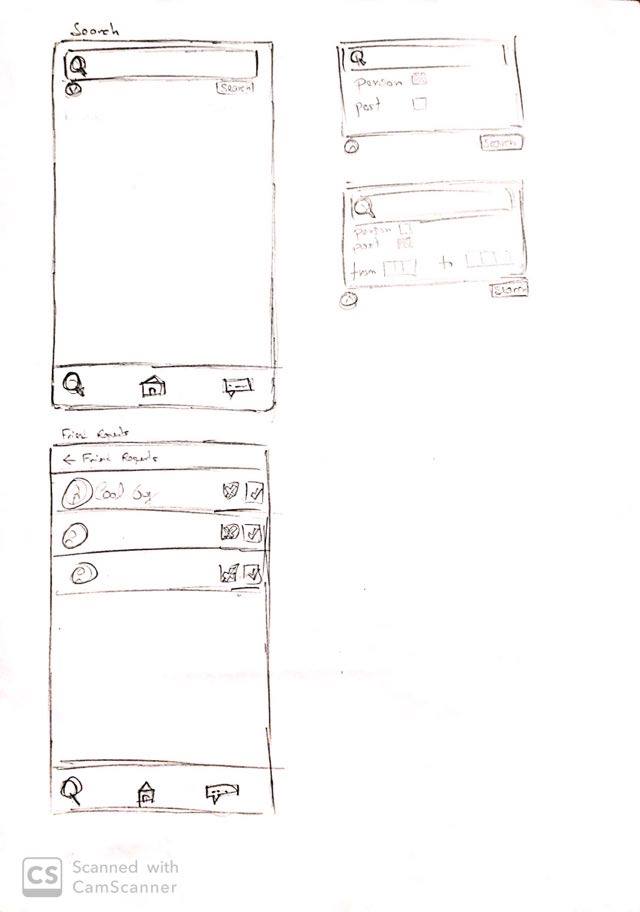 Search
Search
person
post
Search
person
post
from to
Search
Friend Requests
← Friend Requests
Cool Guy
CS Scanned with
CamScanner